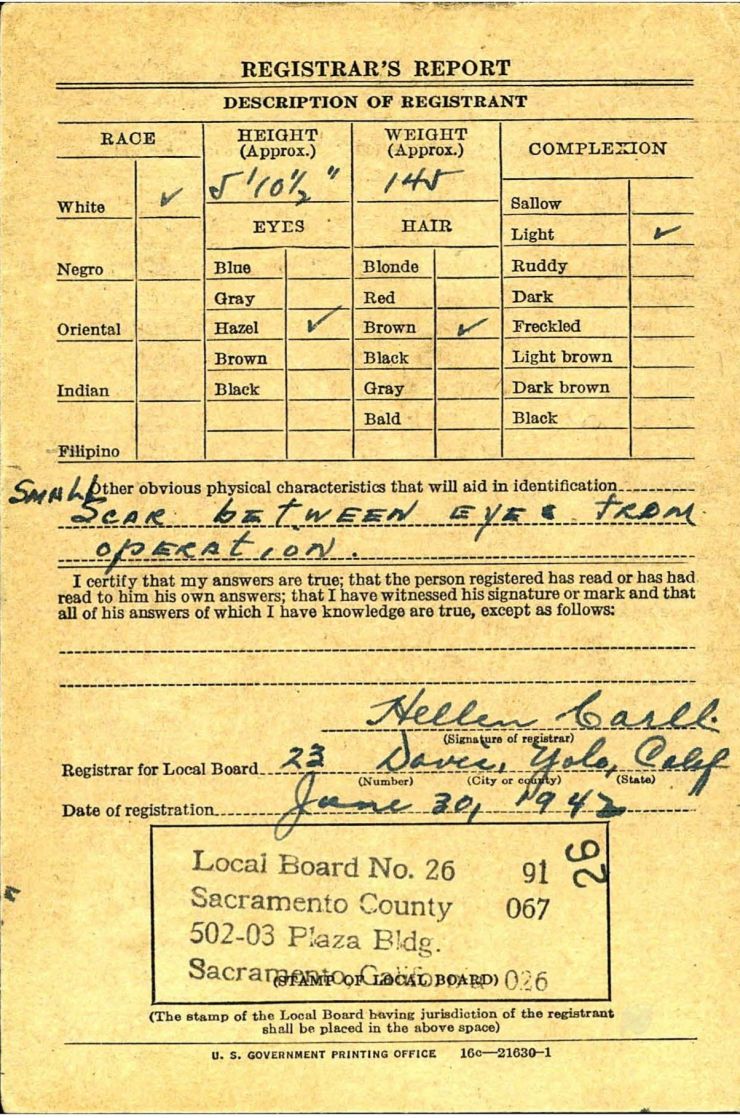 REGISTRAR'S REPORT
DESCRIPTION OF REGISTRANT
RACE
HEIGHT
(Approx.)
WEIGHT
(Approx.)
COMPLEXION
5'10½"
145
White ✓
Sallow
EYES
HAIR
Light ✓
Negro
Blue
Blonde
Ruddy
Gray
Red
Dark
Oriental
Hazel ✓
Brown ✓
Freckled
Brown
Black
Light brown
Indian
Black
Gray
Dark brown
Bald
Black
Filipino
Other obvious physical characteristics that will aid in identification
SMALL
SCAR BETWEEN EYES FROM
OPERATION.
I certify that my answers are true; that the person registered has read or has had
read to him his own answers; that I have witnessed his signature or mark and that
all of his answers of which I have knowledge are true, except as follows:
Hellen
(Signature of registrar)
Registrar for Local Board 23 Davis, Yolo, Calif
(Number) (City or county) (State)
Date of registration June 30, 1942
Local Board No. 26 91 26
Sacramento County 067
502-03 Plaza Bldg.
Sacramento, California 026
(STAMP OF LOCAL BOARD)
(The stamp of the Local Board having jurisdiction of the registrant
shall be placed in the above space)
U. S. GOVERNMENT PRINTING OFFICE 16c—21630-1